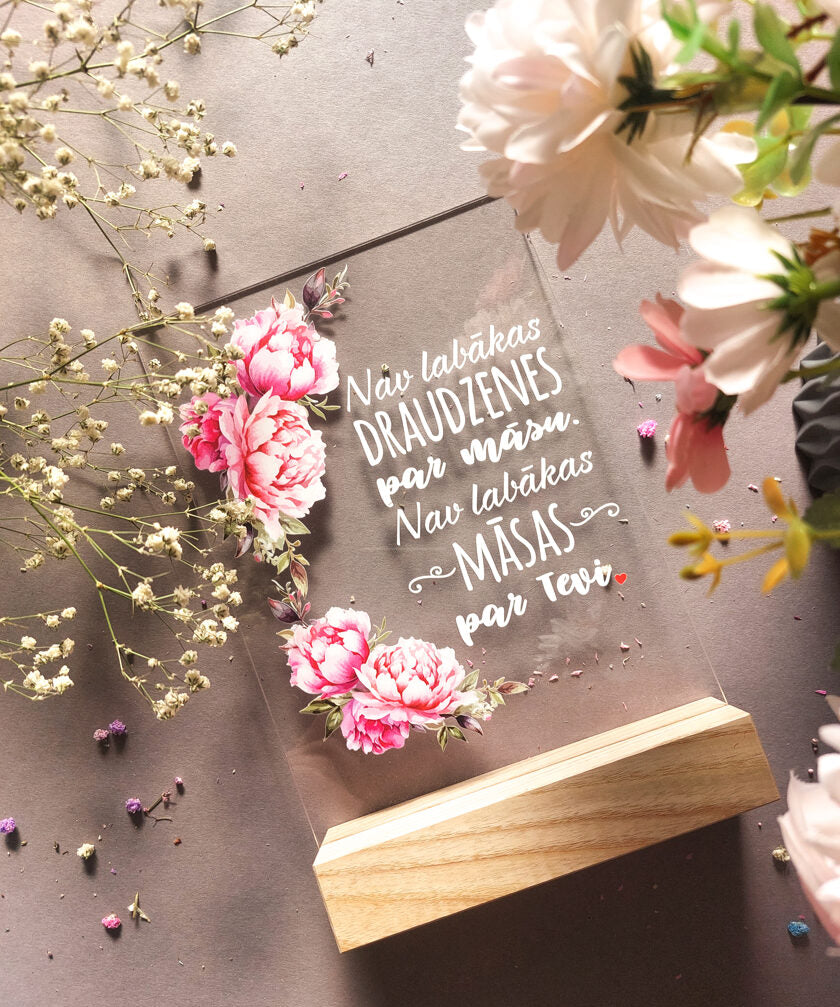 Nav labākas
DRAUDZENES
par māsu.
Nav labākas
MĀSAS
par Tevi